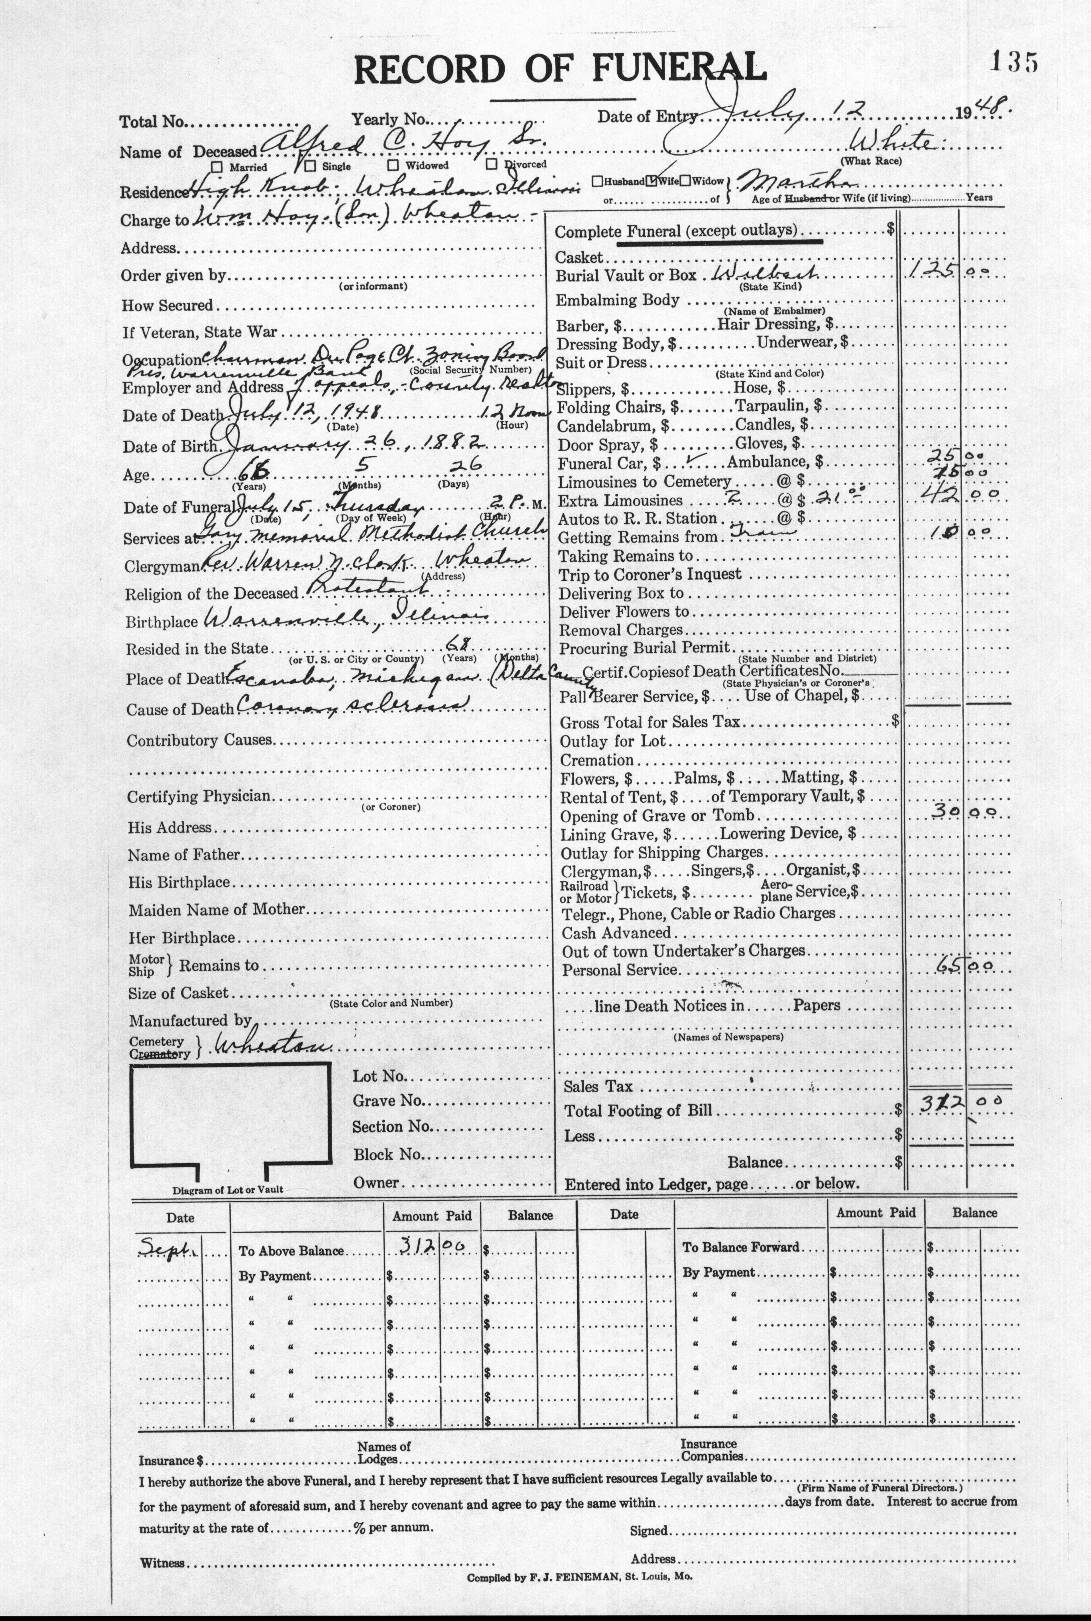 RECORD OF FUNERAL
135
Total No. Yearly No. Date of Entry July 12 1948.
Name of Deceased Alfred C. Hoy Sr. White
☐ Married ☐ Single ☐ Widowed ☐ Divorced (What Race)
Residence High Knob, Wheaton Illinois ☐ Husband ☑ Wife ☐ Widow } Martha
or of Age of Husband or Wife (if living) Years
Charge to Wm Hoy - (Son) Wheaton -
Address
Order given by
(or informant)
How Secured
If Veteran, State War
Occupation Chairman Du Page Ct. Zoning Board
Pres. Warrenville Bank (Social Security Number)
Employer and Address of appeals - County Realtor
Date of Death July 12, 1948 12 Noon
(Date) (Hour)
Date of Birth January 26, 1882
Age 66 5 26
(Years) (Months) (Days)
Date of Funeral July 15, Thursday 2 P. M.
(Date) (Day of Week) (Hour)
Services at Gary Memorial Methodist Church
Clergyman Rev. Warren N. Clark Wheaton
(Address)
Religion of the Deceased Protestant
Birthplace Warrenville, Illinois
Resided in the State 68
(or U. S. or City or County) (Years) (Months)
Place of Death Escanaba, Michigan (Delta County
Cause of Death Coronary sclerosis
Contributory Causes
Certifying Physician
(or Coroner)
His Address
Name of Father
His Birthplace
Maiden Name of Mother
Her Birthplace
Motor
Ship } Remains to
Size of Casket
(State Color and Number)
Manufactured by
Cemetery
Crematory } Wheaton
Lot No.
Grave No.
Section No.
Block No.
Owner
Diagram of Lot or Vault
Complete Funeral (except outlays) $
Casket
Burial Vault or Box Wilbert 125 00
(State Kind)
Embalming Body
(Name of Embalmer)
Barber, $ Hair Dressing, $
Dressing Body, $ Underwear, $
Suit or Dress
(State Kind and Color)
Slippers, $ Hose, $
Folding Chairs, $ Tarpaulin, $
Candelabrum, $ Candles, $
Door Spray, $ Gloves, $
Funeral Car, $ ✓ Ambulance, $ 25 00
Limousines to Cemetery @ $ 15 00
Extra Limousines 2 @ $ 21 00 42 00
Autos to R. R. Station @ $
Getting Remains from Train 10 00
Taking Remains to
Trip to Coroner's Inquest
Delivering Box to
Deliver Flowers to
Removal Charges
Procuring Burial Permit
(State Number and District)
Certif. Copies of Death Certificates No.
(State Physician's or Coroner's
Pall Bearer Service, $ Use of Chapel, $
Gross Total for Sales Tax $
Outlay for Lot
Cremation
Flowers, $ Palms, $ Matting, $
Rental of Tent, $ of Temporary Vault, $
Opening of Grave or Tomb 30 00
Lining Grave, $ Lowering Device, $
Outlay for Shipping Charges
Clergyman, $ Singers, $ Organist, $
Railroad
or Motor } Tickets, $ Aero-
plane Service, $
Telegr., Phone, Cable or Radio Charges
Cash Advanced
Out of town Undertaker's Charges
Personal Service 65 00
line Death Notices in Papers
(Names of Newspapers)
Sales Tax
Total Footing of Bill $ 312 00
Less $
Balance $
Entered into Ledger, page or below.
Date Amount Paid Balance Date Amount Paid Balance
Sept. To Above Balance 312 00 $ To Balance Forward $
By Payment $ $ By Payment $ $
" " $ $ " " $ $
" " $ $ " " $ $
" " $ $ " " $ $
" " $ $ " " $ $
" " $ $ " " $ $
" " $ $ " " $ $
Insurance $ Names of
Lodges Insurance
Companies
I hereby authorize the above Funeral, and I hereby represent that I have sufficient resources Legally available to
(Firm Name of Funeral Directors.)
for the payment of aforesaid sum, and I hereby covenant and agree to pay the same within days from date. Interest to accrue from
maturity at the rate of % per annum. Signed
Witness Address
Compiled by F. J. FEINEMAN, St. Louis, Mo.